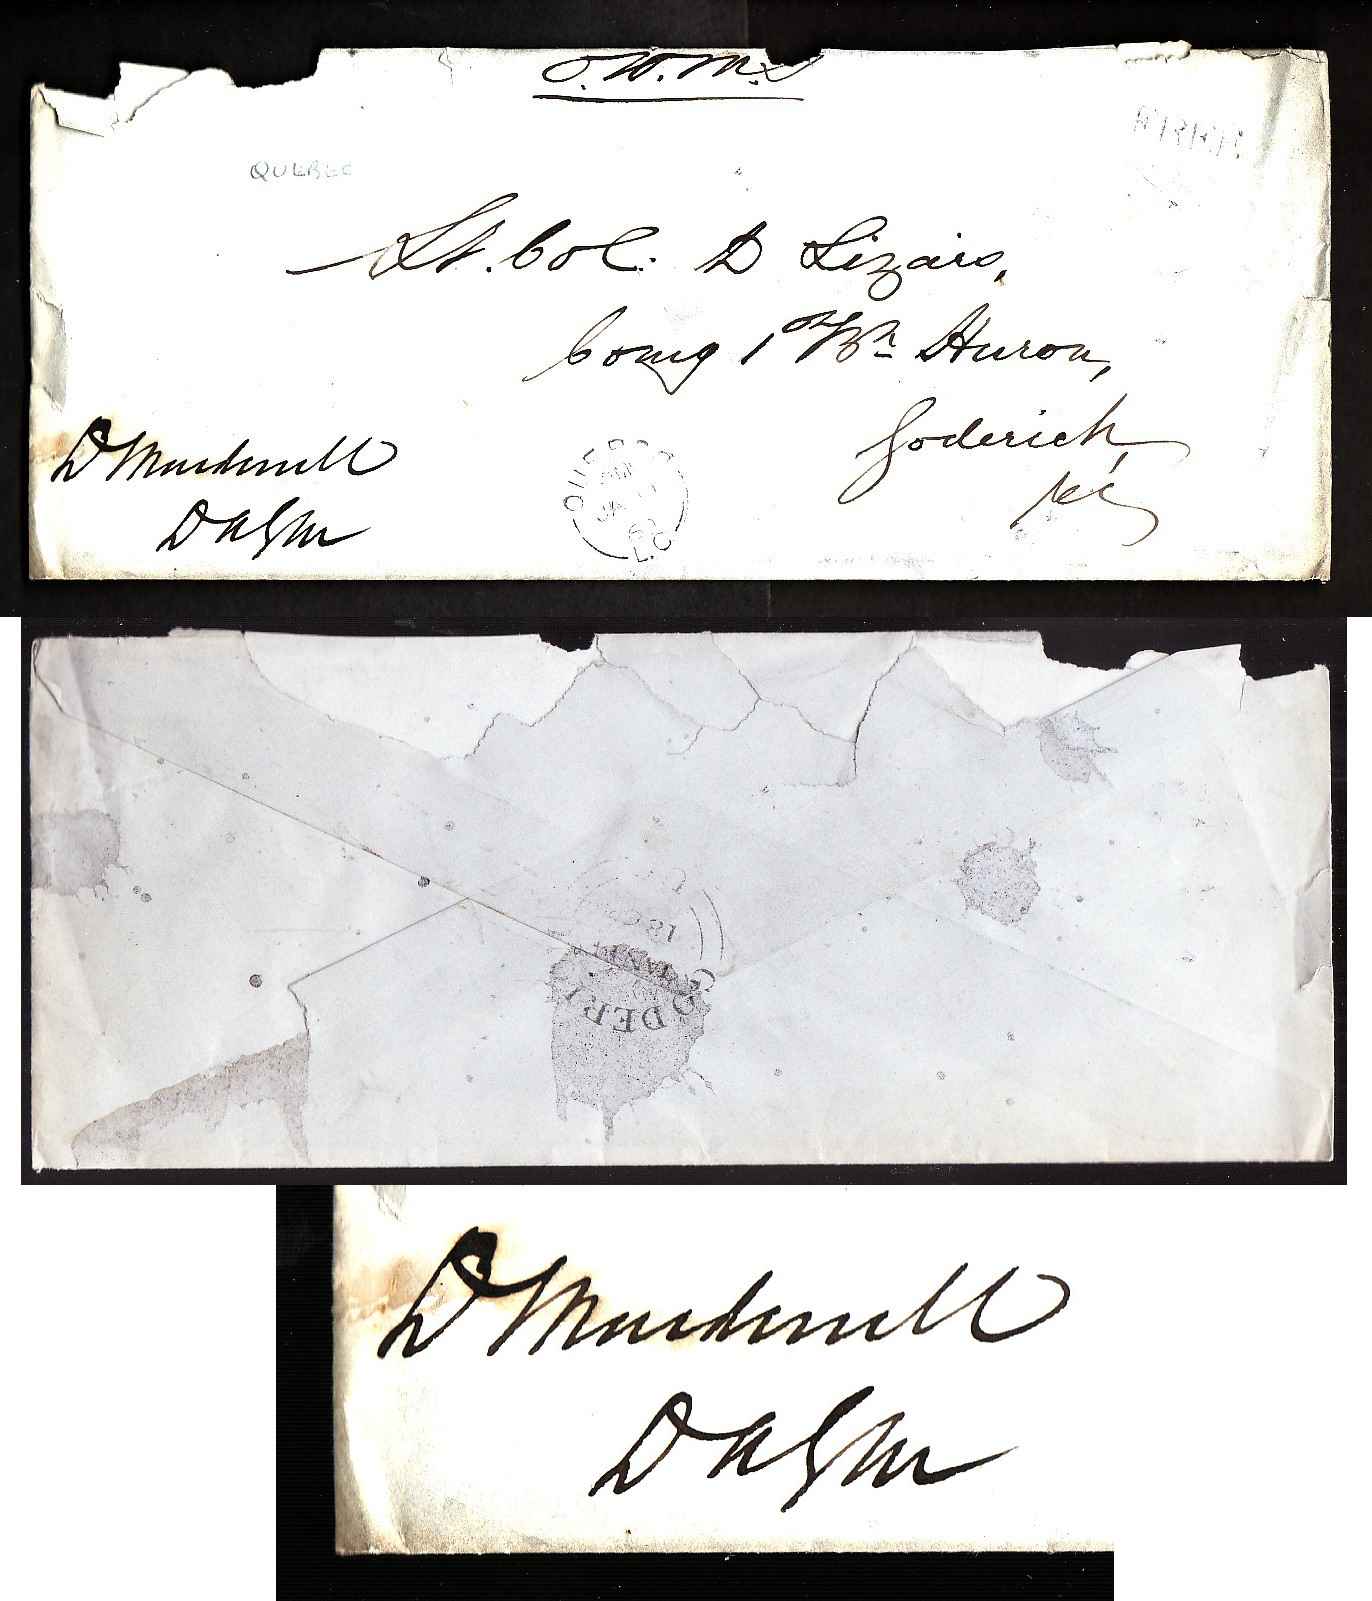 O.H.M.S
QUEBEC
Lt. Col. D Lizars,
Comg 1st Bn Huron,
Goderich,
D Macdonell
DAGM
QUEBEC
JA
L.C.
GODERI
D Macdonell
DAGM